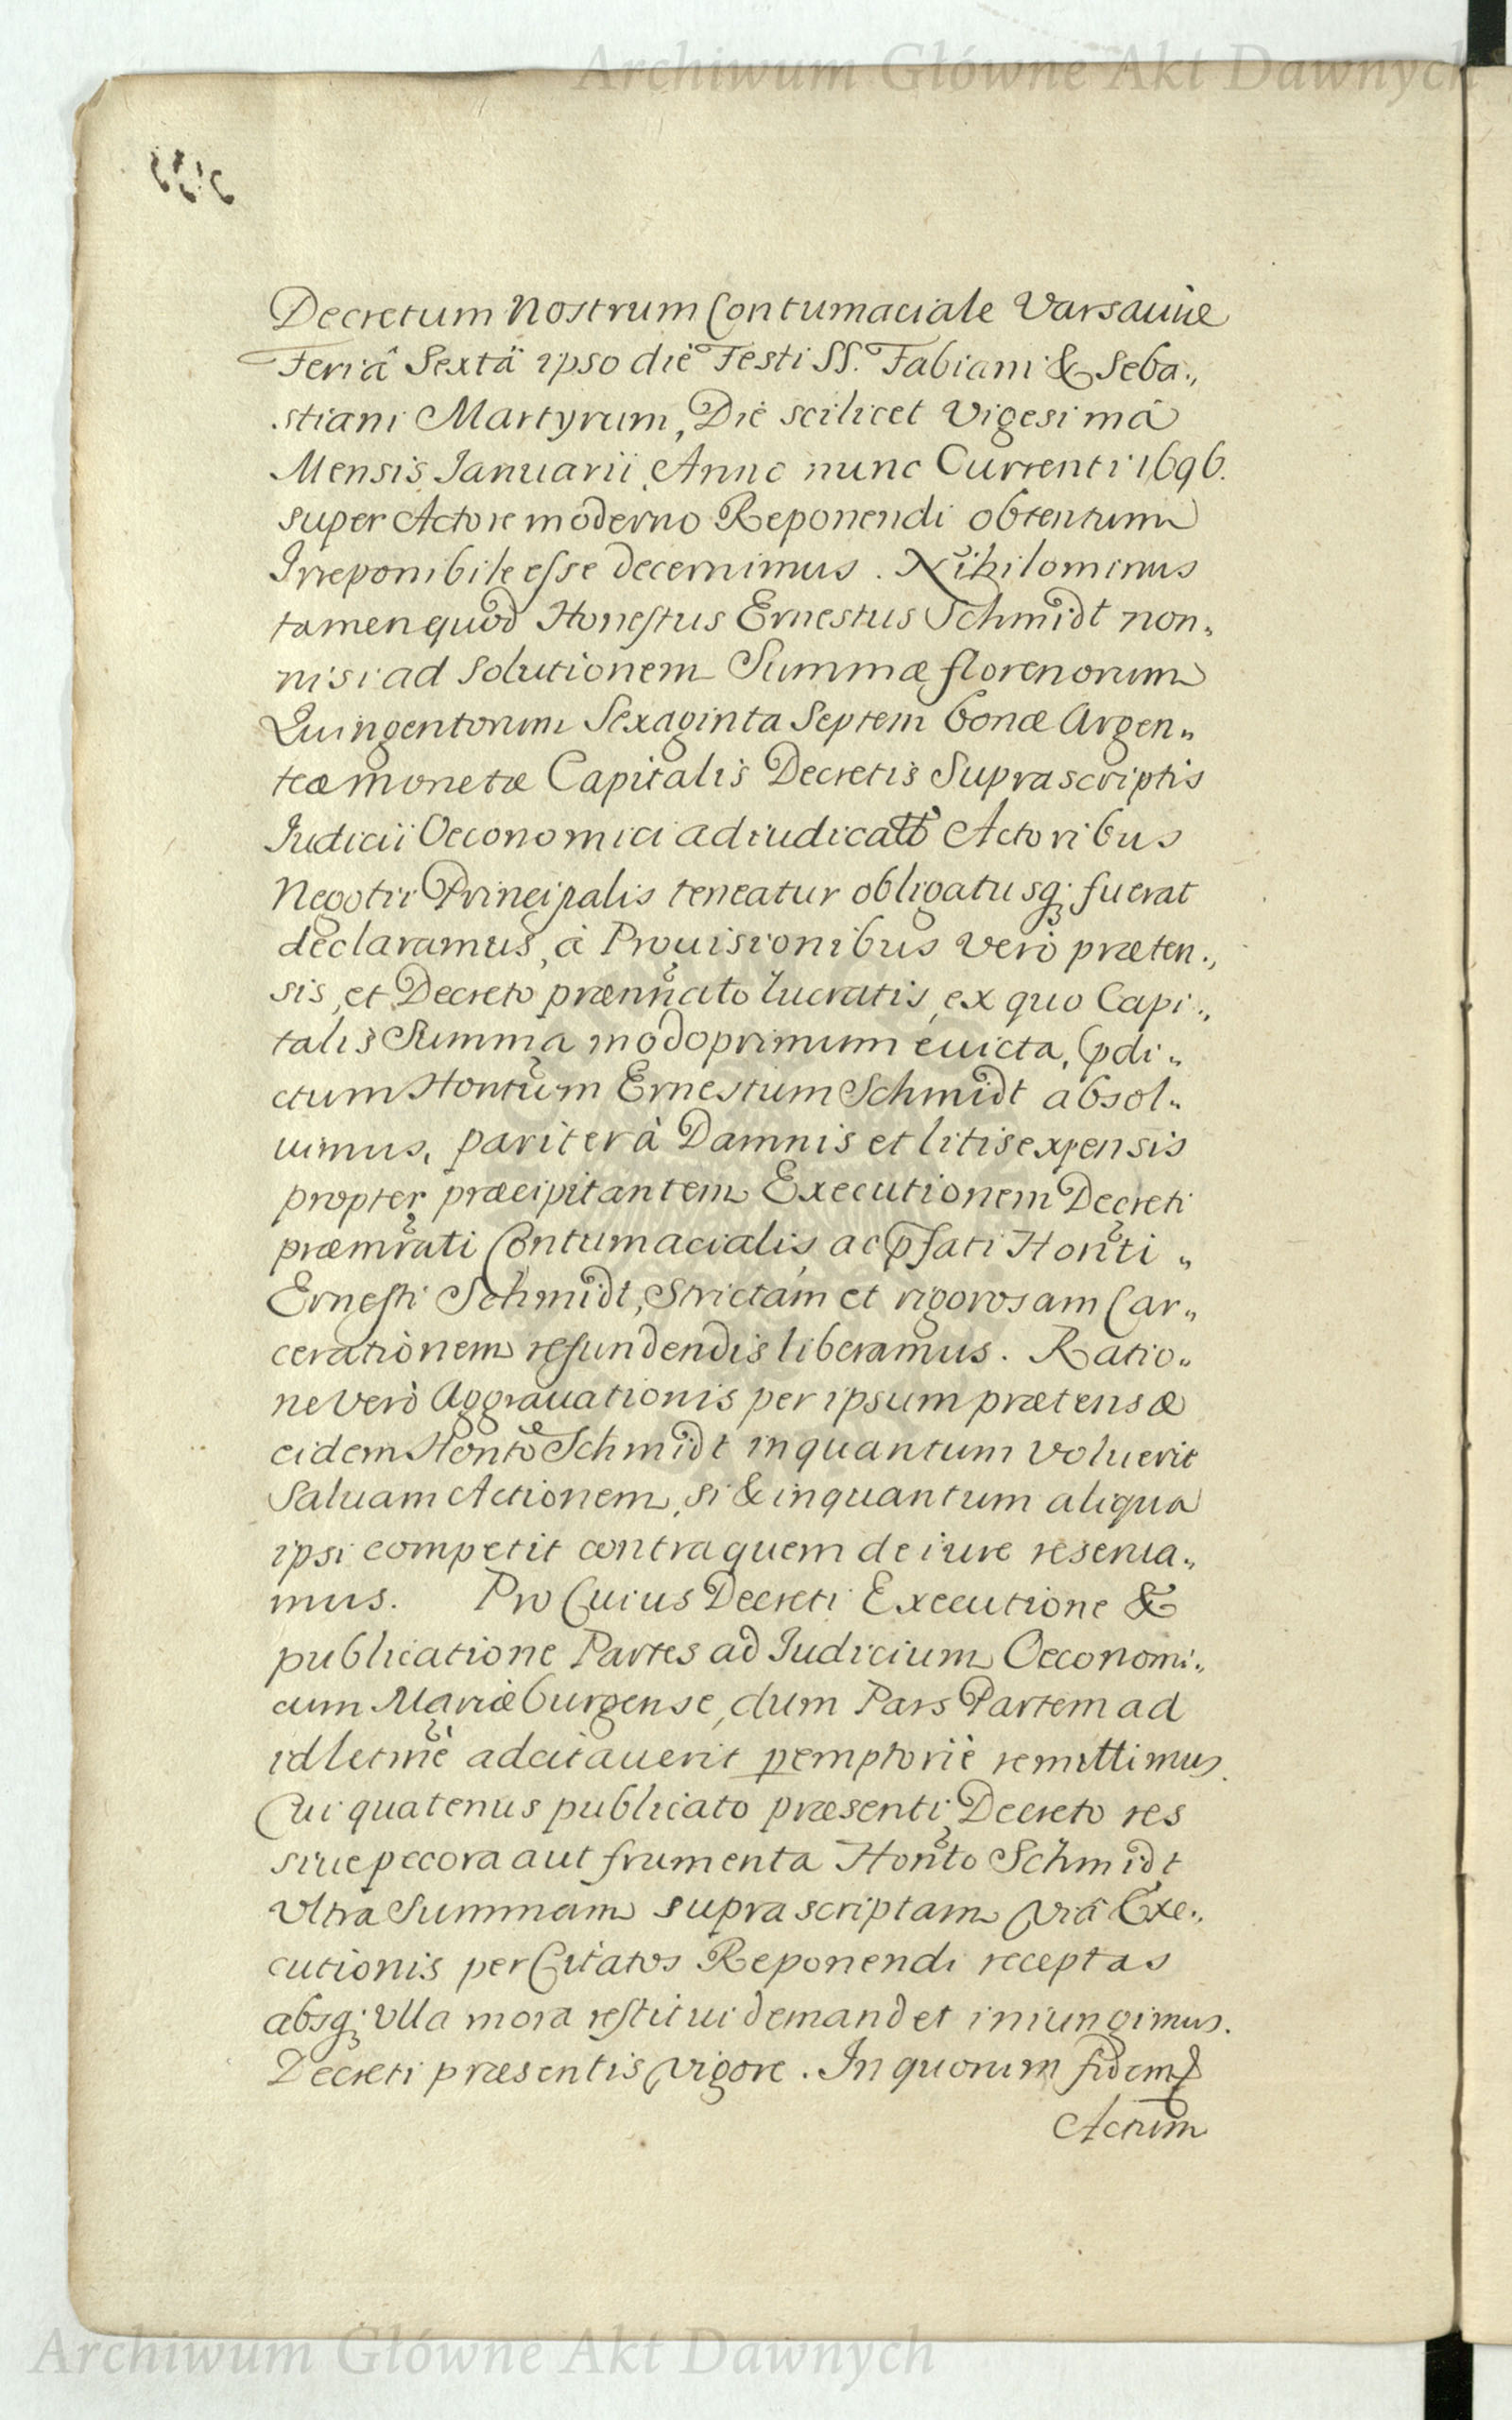 Archiwum Główne Akt Dawnych
Decretum Nostrum Contumaciale Varsaviæ
Feriâ Sextâ ipso die Festi SS. Fabiani & Seba„
stiani Martyrum, Die scilicet Vigesimâ
Mensis Ianuarii Anno nunc Currenti 1696.
super Actore moderno Reponendi obtentum
Irreponibile esse decernimus. Nihilominus
tamen quod Honestus Ernestus Schmidt non„
nisi ad Solutionem Summæ florenorum
Quingentorum Sexaginta Septem bonæ Argen„
teæ monetæ Capitalis Decretis Suprascriptis
Iudicii Oeconomici adiudicatæ Actoribus
Negotii Principalis teneatur obligatusq; fuerat
declaramus, à Prouisionibus vero præten„
sis, et Decreto prænñcato lucratis, ex quo Capi„
talis Summa modo primum euicta, pdi„
ctum Hontum Ernestum Schmidt absol„
uimus, pariter à Damnis et litis expensis
propter præcipitantem Executionem Decreti
præmrati Contumacialis, ac pfati Honti„
Ernesti Schmidt, Strictam et rigorosam Car„
cerationem refundendis liberamus. Ratio„
ne verò Aggrauationis per ipsum prætensæ
eidem Honto Schmidt inquantum voluerit
Saluam Actionem, si & inquantum aliqua
ipsi competit contra quem de iure reserua„
mus. Pro Cuius Decreti Executione &
publicatione Partes ad Iudicium Oeconomi„
cum Mariæburgense, dum Pars Partem ad
id letmè adcitauerit pemptoriè remittimus.
Cui quatenus publicato præsenti Decreto res
siue pecora aut frumenta Honto Schmidt
Vltra Summam supra scriptam viâ Exe„
cutionis per Citatos Reponendi receptas
absq; Vlla mora restitui demandet iniungimus.
Decreti præsentis vigore. In quorum fidem
Actum
Archiwum Główne Akt Dawnych